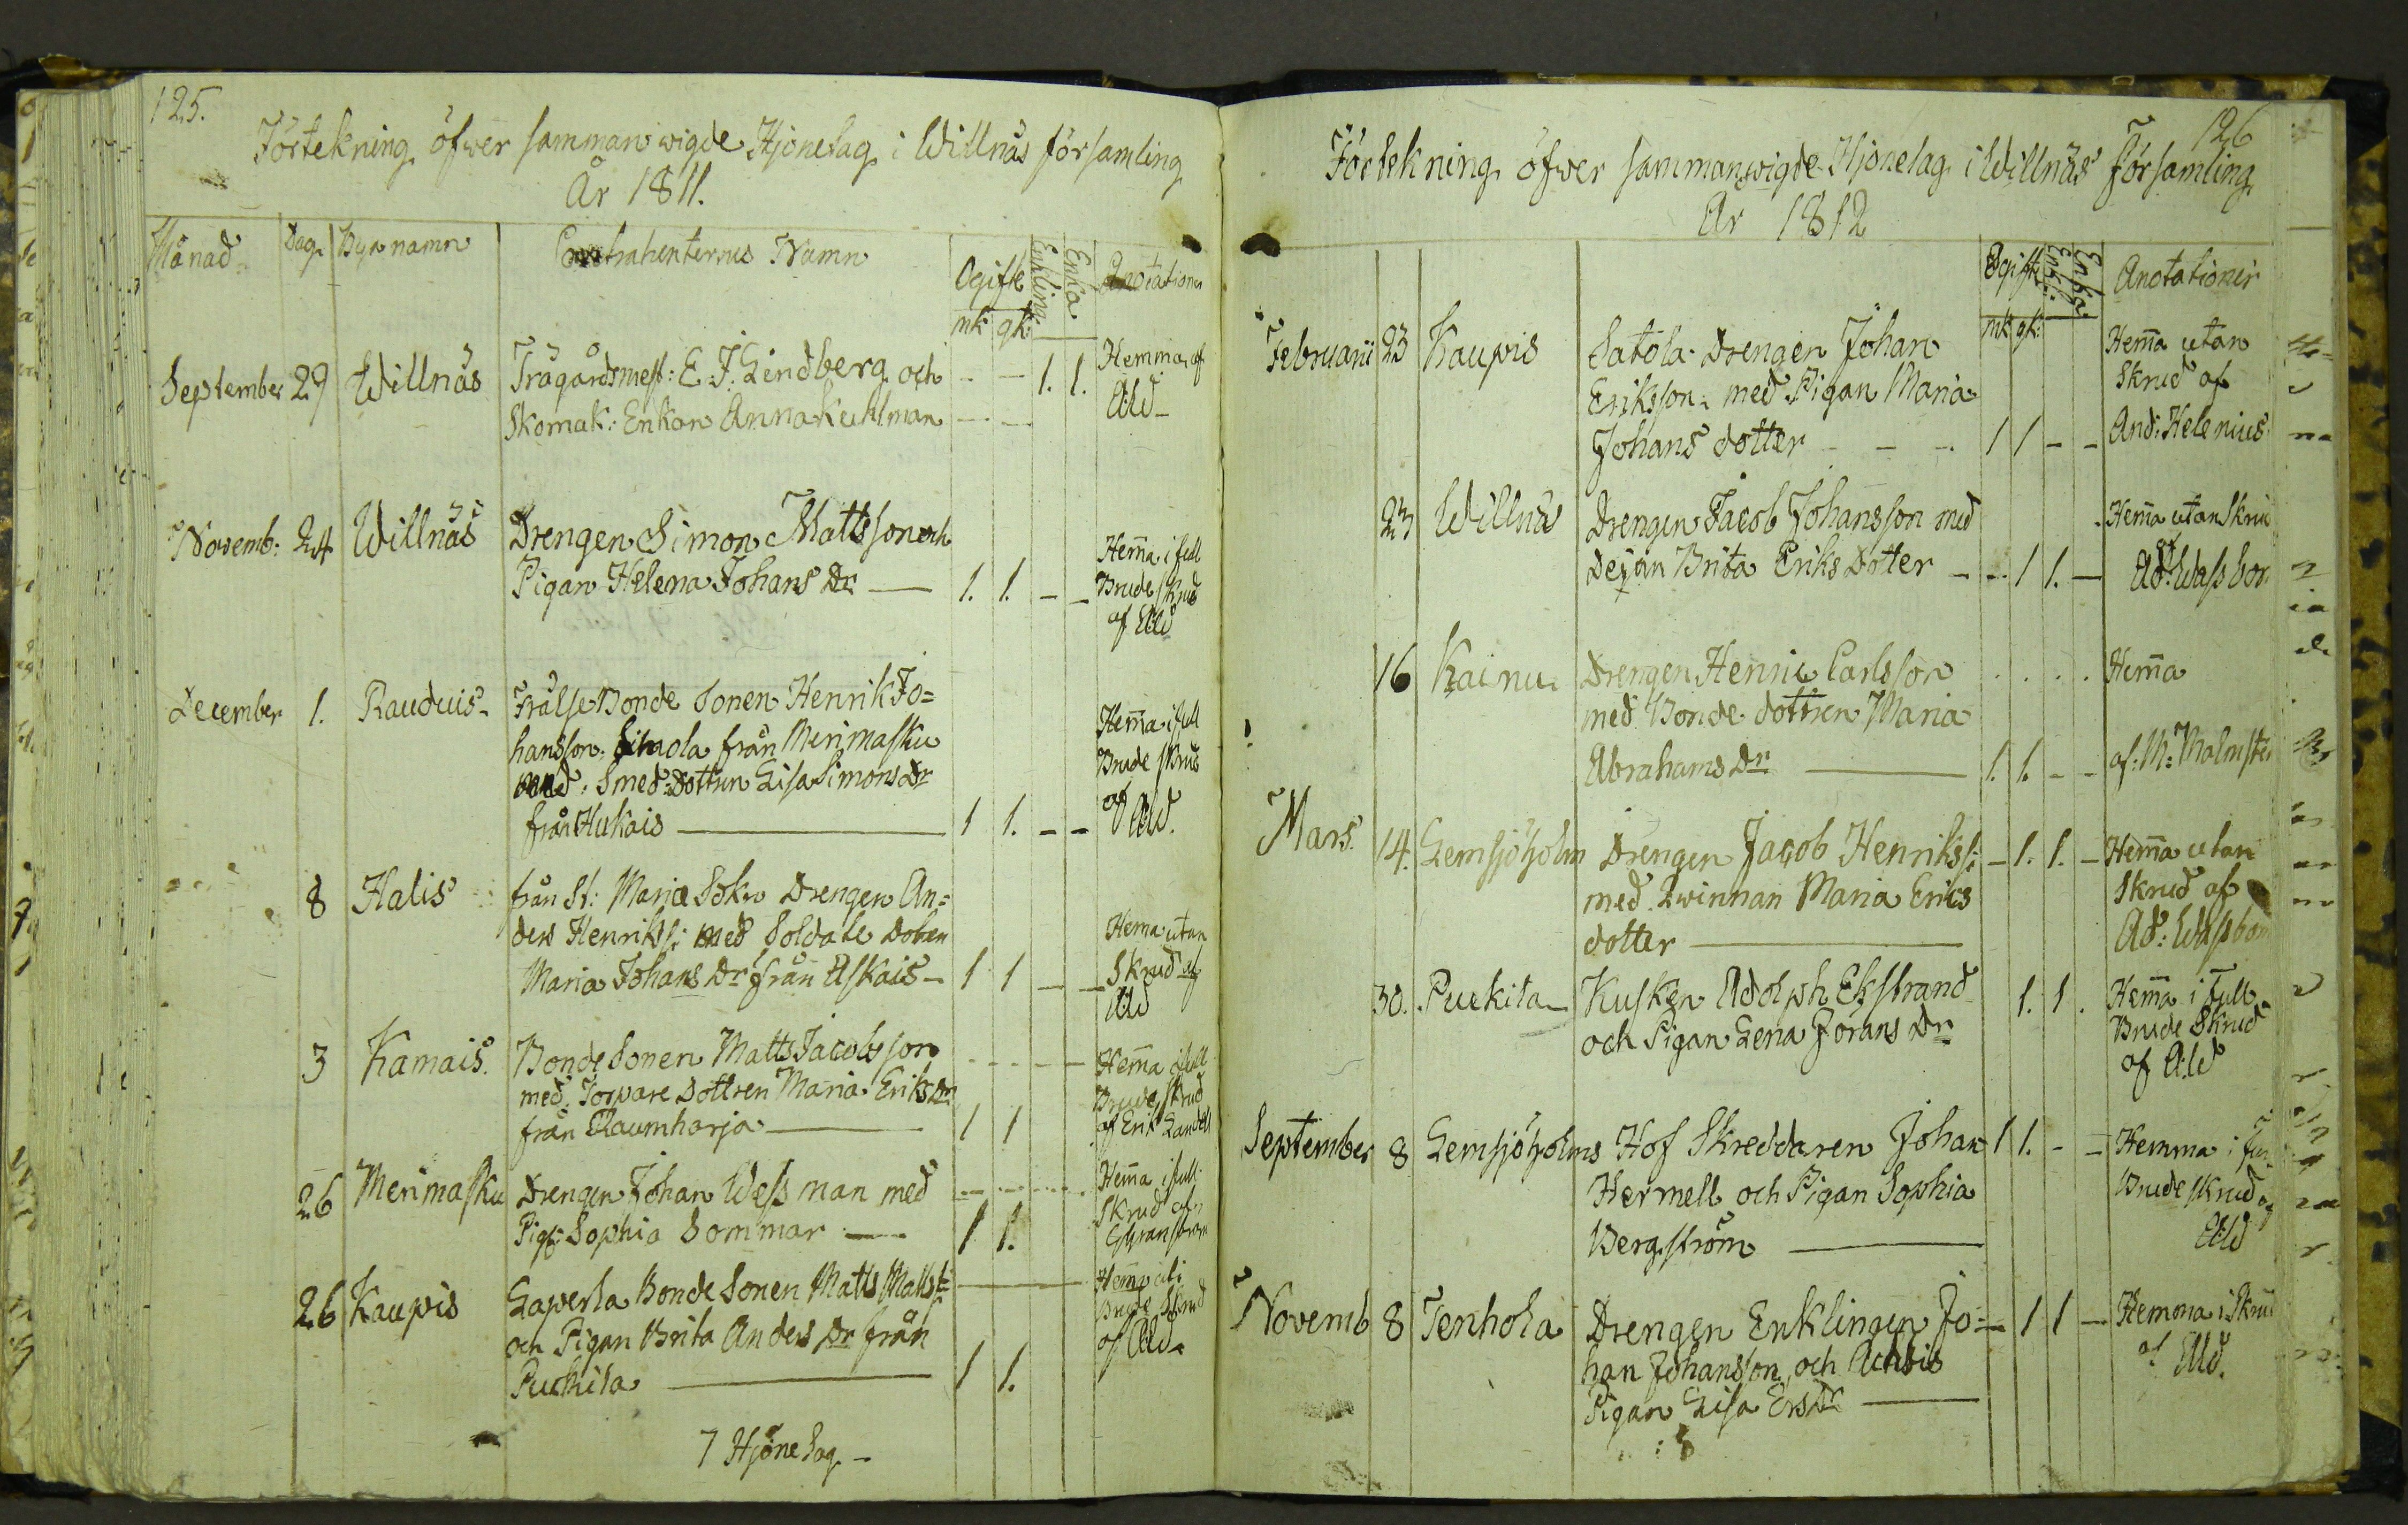 125.
Förtekning öfwer sammanwigde Hjonelag i Willnäs församling
År 1811.
Månad Dag Byanamn Contrahenternes Namn Ogifte Enkling Enka Anotationer
mk: qk:
September 29 Willnäs Trägårdsmest: E. J. Lindberg och - - 1. 1. Hemma af
Skomak: Enkan Anna Kuhlman - - Ald -
Novemb: 24 Willnäs Drengen Simon Mattsson och Hem̄a i full
Pigan Helena Johans Dr 1. 1. - - Brudeskrud
af Ald
December 1. Rauduis Frälse Bonde Sonen Henrik Jo=
hansson från Merimasku Hem̄a i full
med Smed: Dottren Lisa Simons Dr Brude skrud
från Hukais 1 1. - - af Ald.
8 Halis från St: Marie Sokn Drengen An=
ders Henrikss: med Soldate Dotren Hema utan
Maria Johans Dr från Askais - 1 1 - - Skrud af
Ald
3 Kamais. Bonde Sonen Matts Jacobsson - - - - Hem̄a i full
med Torpare Dottren Maria Eriks Dr Brude skrud
från Raumharja 1 1 af Erik Landell
26 Merimasku Drengen Johan Wessman med - - - - Hem̄a i full
Pig: Sophia Sommar 1 1. Skrud af
Granström
26 Kaupis Laperla Bonde Sonen Matts Matts:
och Pigan Brita Anders Dr från Brude Skrud
Puckila 1 1. af Ald.
7 Hjonelag -
126
Förtekning öfwer sammanwigde Hjonelag i Willnäs Församling
År 1812
Ogifte Enkl: Enka Anotationer
mk: qk:
Februarii 23 Kaupis Satola Drengen Johan Hem̄a utan
Eriksson med Pigan Maria Skrud af
Johans dotter - - - 1 1 - - And: Helenius
23 Willnäs Drengen Jacob Johansson med Hem̄a utan Skrud
Dejan Brita Eriks Dotter - - 1 1. - af Ad: Wassbom
16 Kainu Drengen Henric Carlsson . . . . Hem̄a
med Bonde dottren Maria
Abrahams Dr 1. 1. - - af M: Malmste
Mars. 14. Lemsjöholm Drengen Jacob Henrikss: - 1. 1. - Hem̄a utan
med Qwinnan Maria Erics Skrud af
dotter Ad: Wassbom
30. Puckila Kusken Adolph Ekstrand 1. 1. Hem̄a i full
och Pigan Lena Jörans Dr Brude Skrud
af Ald
September 8 Lemsjöholms Hof Skreddaren Johan 1 1. - - Hemma i
Hermell och Pigan Sophia Brude skrud af
Bergström Ald
Novemb 8 Tenhola Drengen Enklingen Jo= - 1 1 - Hemma i Skrud
han Johansson och af Ald.
Pigan Lisa Ers Dr
: 8